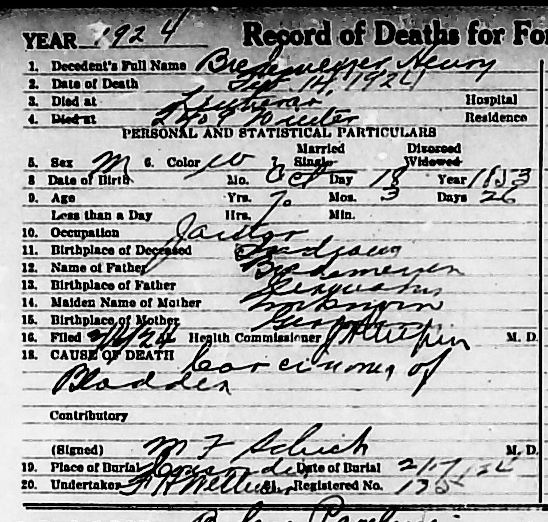 YEAR 1924 Record of Deaths for For
1. Decedent's Full Name Henry
2. Date of Death Feb. 14, 1924
3. Died at Lutheran, Hospital
4. Died at 2409 Residence
PERSONAL AND STATISTICAL PARTICULARS
5. Sex M 6. Color W 7. Married Single Divorced Widowed
8 Date of Birth Mo. Oct Day 18 Year 1853
9. Age Yrs. 70 Mos. 3 Days 26
Less than a Day Hrs. Min.
10. Occupation Janitor
11. Birthplace of Deceased Indiana
12. Name of Father
13. Birthplace of Father Germany
14. Maiden Name of Mother Unknown
15. Birthplace of Mother Germany
16. Filed Health Commissioner M. D.
18. CAUSE OF DEATH Carcinoma of
Bladder
Contributory
(Signed) M F Schick M. D.
19. Place of Burial Date of Burial 2/17/24
20. Undertaker Registered No.